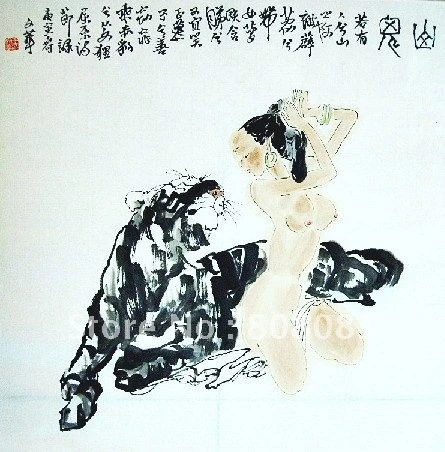 山鬼
若有
人兮山
之阿
被薜
荔兮
带
女萝
既含
睇兮
又宜笑
子慕
予兮善
窈窕
乘赤豹
兮从文狸
屈原诗
节录
Store No: